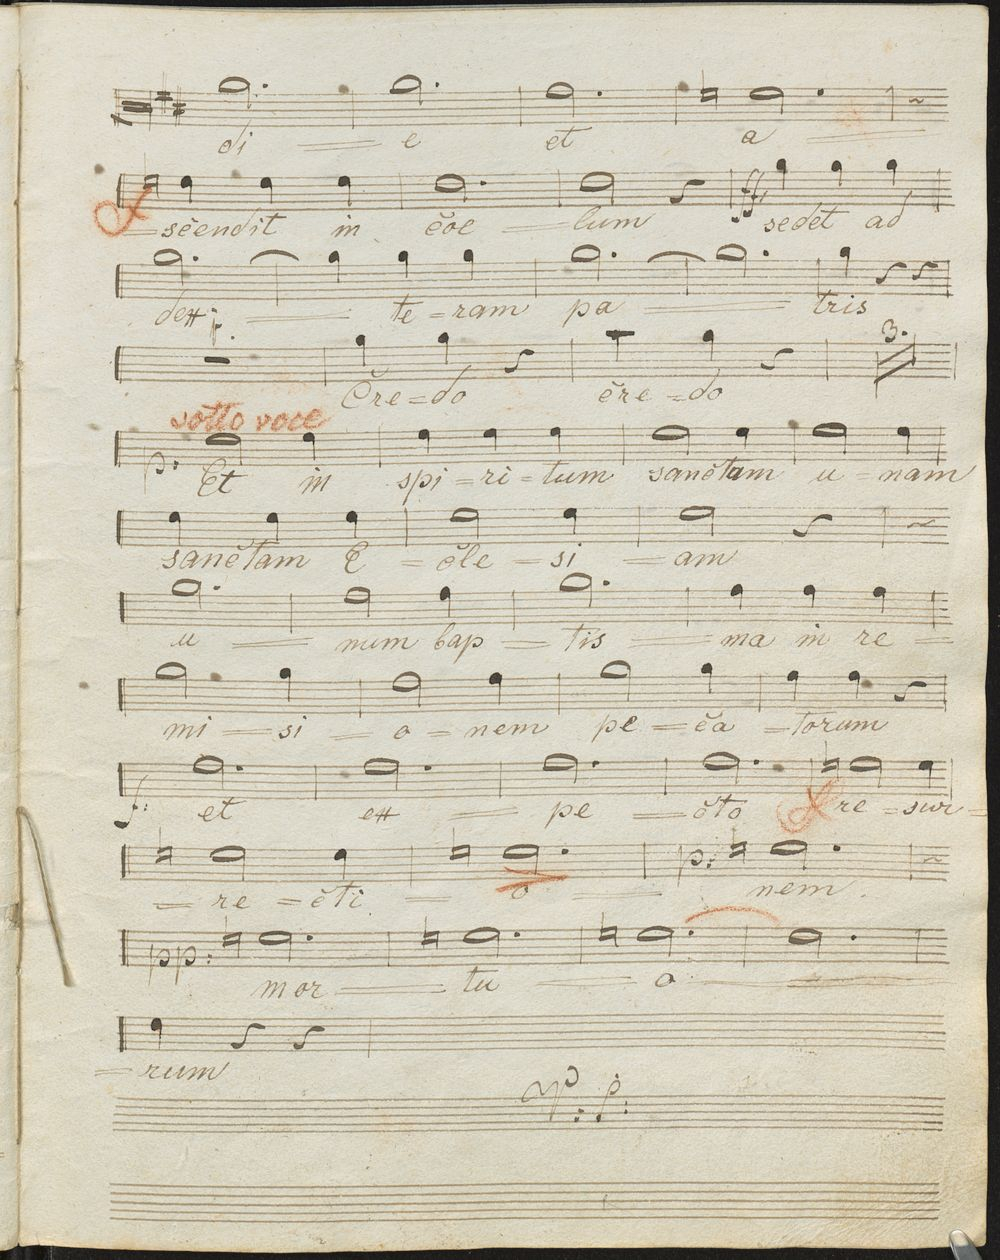 di = e et a =
= sčendit in čoe = lum ff. sedet ad
dex: = te = ram pa = tris
p. Čre = do čre = do 3.
sotto voce
p. Et in spi = ri = tum sančtam u nam
sančtam E = čle = si = am
u = num bap = tis = ma in re =
mi = si = o = nem pe = ča = torum
f: et ex = pe = čto re = sur =
= re = čti = o = p: nem
pp: mor = tu = o =
= rum